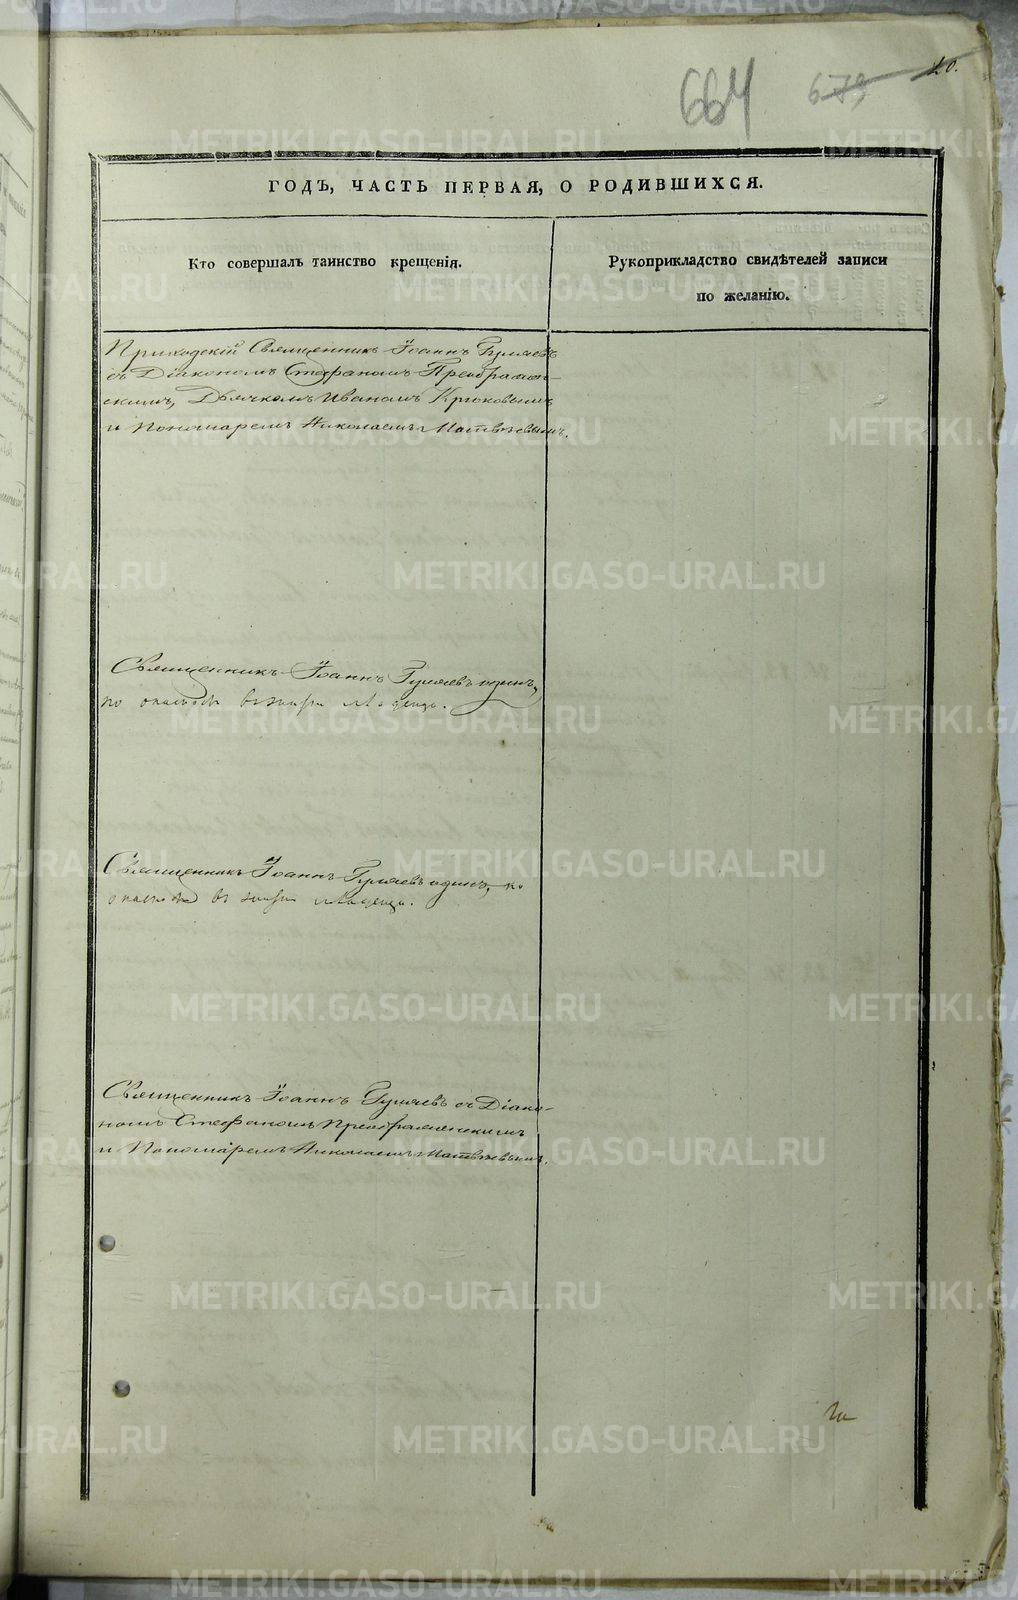 664 673 20.
ГОДЪ, ЧАСТЬ ПЕРВАЯ, О РОДИВШИХСЯ.
Кто совершалъ таинство крещенія.
Рукоприкладство свидѣтелей записи
по желанію.
Приходскій Священникъ Іоаннъ Гуляевъ
съ Діакономъ Стефаномъ Преображен-
скимъ, Дьячкомъ Иваномъ Крюковымъ
и Пономаремъ Николаемъ Матвѣевымъ.
Священникъ Іоаннъ Гуляевъ одинъ,
по опасности въ жизни младенца.
Священникъ Іоаннъ Гуляевъ одинъ, по
опасности въ жизни младенца.
Священникъ Іоаннъ Гуляевъ съ Діако-
номъ Стефаномъ Преображенскимъ
и Пономаремъ Николаемъ Матвѣевымъ.
METRIKI.GASO-URAL.RU